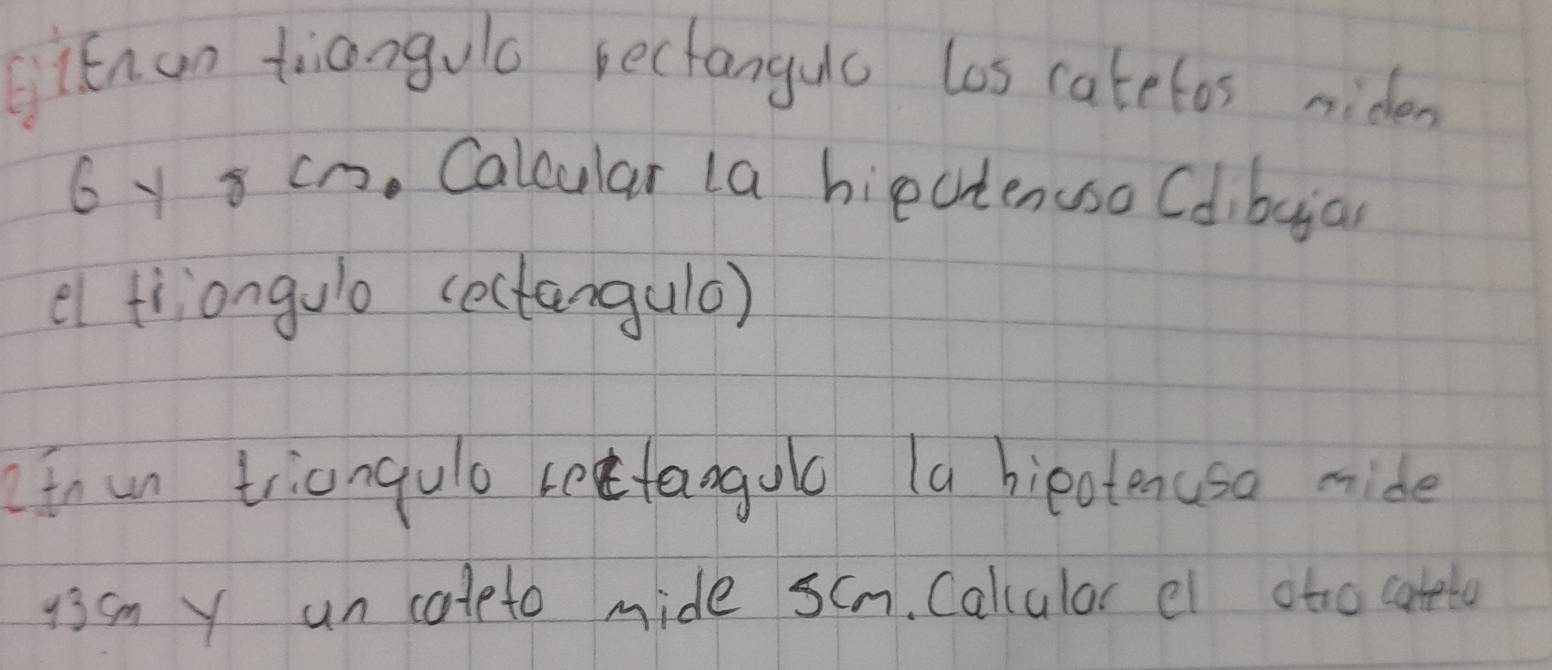 Ej1 En un triangulo rectangulo los catetos miden
6 y 8 cm. Calcular la hipotenusa (dibujar
el triangulo rectangulo)
2 En un triangulo rectangulo la hipotenusa mide
13cm y un cateto mide 5cm. Calcular el otro cateto